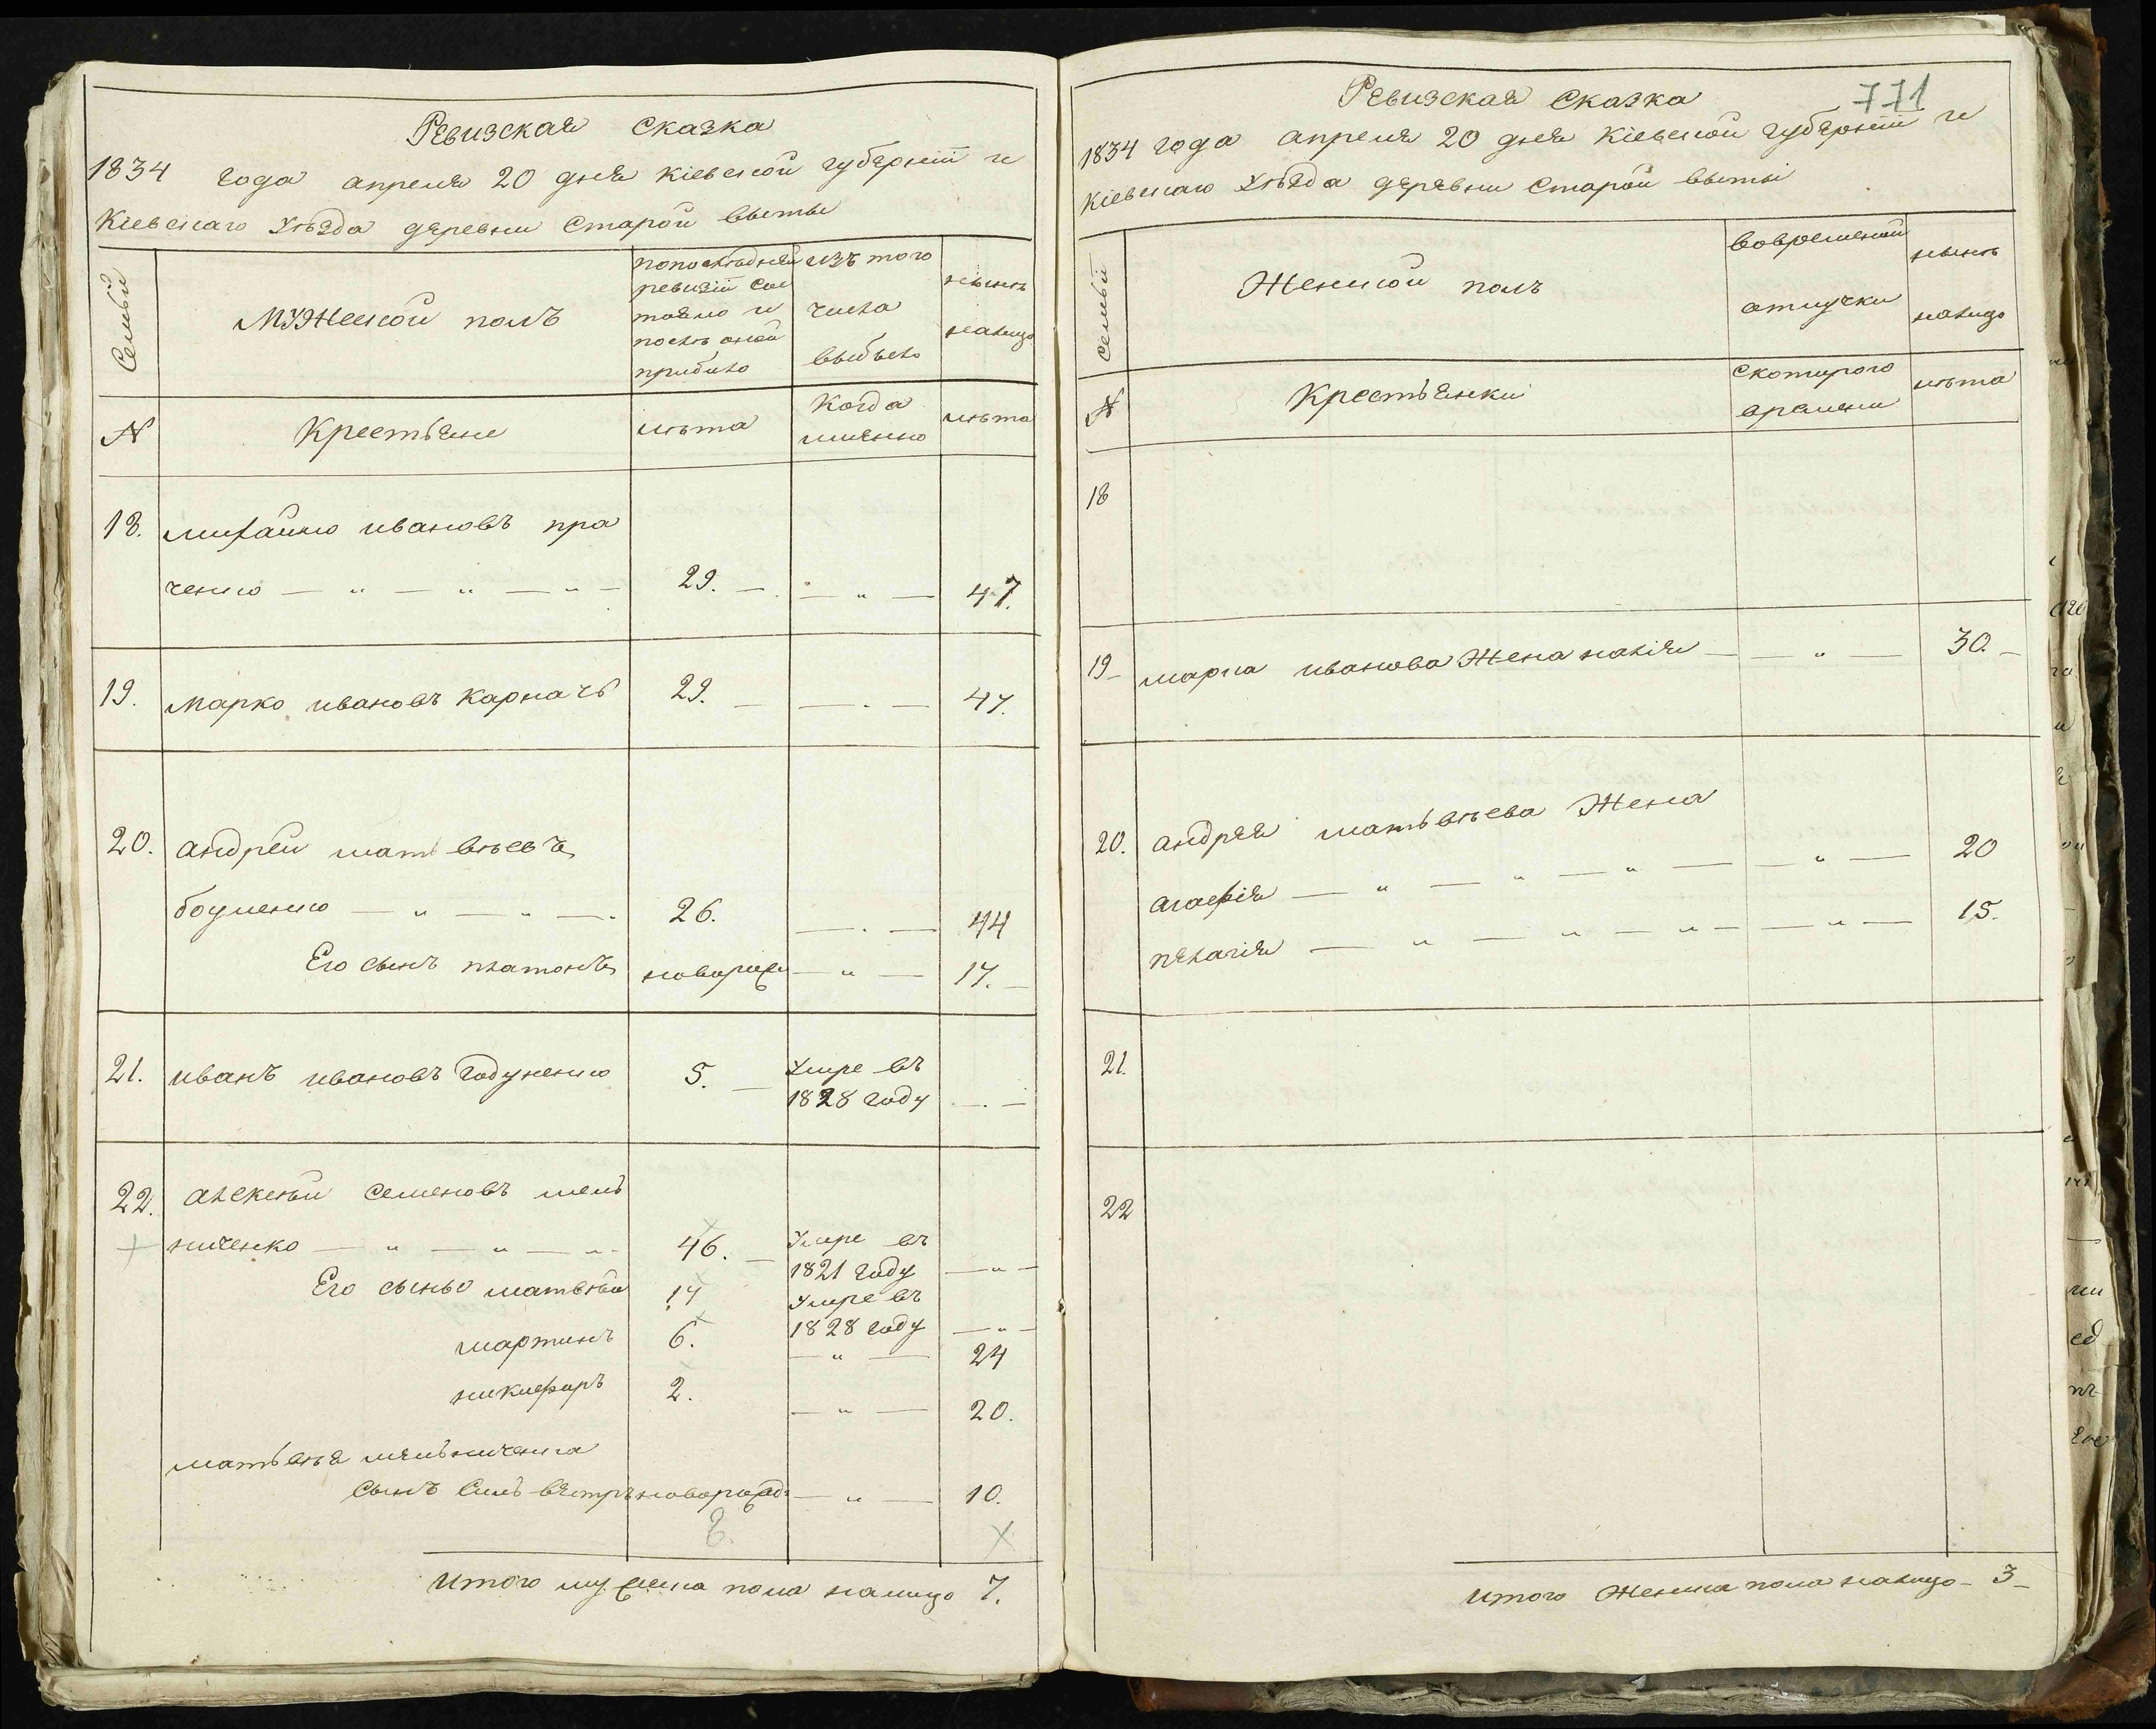 Ревизская сказка
1834 года апреля 20 дня Кіевской губерніи и
Кіевскаго Уѣзда деревни Старой
Семьи
Мужеской полъ
попослѣдней
ревизіи сос
тояло и
послѣ оной
прибыло
изъ того
числа
выбыло
нынѣ
налицо
N
Крестьяне
лѣта
Когда
именно
лѣта
18. михайло ивановъ пра
ченко — „ — „ — „ — 29. — — „ — 47.
19. Марко ивановъ Карначъ 29. — — . — 47.
20. андрей матьвѣевъ
— „ — „ — . 26. — . — 44
Его сынъ платонъ новорож — „ — 17. —
21. иванъ ивановъ Годуненко 5. — Умре въ
1828 году — . —
22. алексѣй семеновъ мель
ниченко — „ — „ — „ 46. — Умре въ
1821 году — „ —
Его сыны матвѣй 14 Умре въ
1828 году — „ —
мартинъ 6. — „ — 24
никифоръ 2. — „ — 20.
матьвѣя мельниченка
сынъ новорожд — „ — 10.
Итого мужеска пола налицо 7.
771
Ревизская сказка
1834 года апреля 20 дня Кіевской губерніи и
Кіевскаго Уѣзда деревни Старой
Семьи
Женской полъ
вовременной
отлучки
нынѣ
налицо
N
Крестьянки
скоторого
времени
лѣта
18
19 — марка иванова Жена — — „ — 30. —
20. андрея матьвѣева Жена
агафія — „ — „ — „ — — „ — 20
пелагія — „ — „ — „ — — „ — 15.
21.
22
итого Женска пола налицо — 3 —